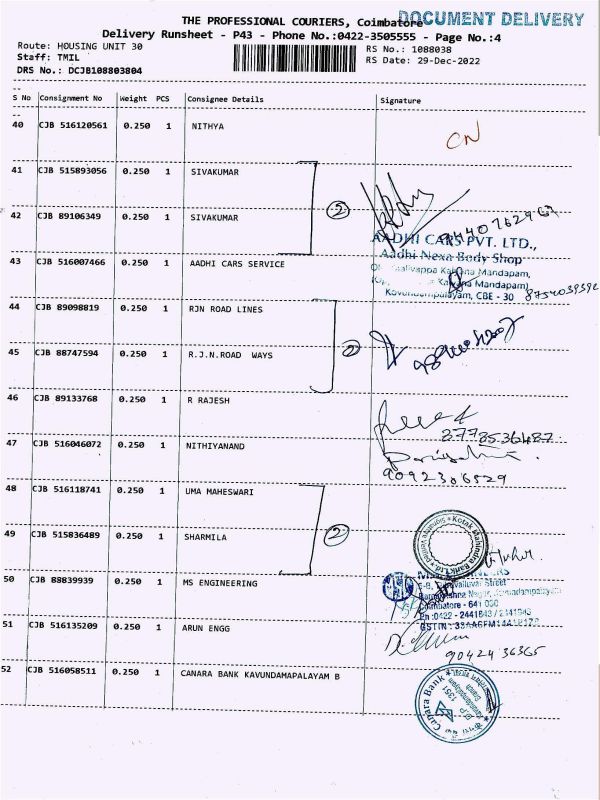 THE PROFESSIONAL COURIERS, Coimbatore
DOCUMENT DELIVERY
Delivery Runsheet - P43 - Phone No.:0422-3505555 - Page No.:4
Route: HOUSING UNIT 30
RS No.: 1088038
Staff: TMIL
RS Date: 29-Dec-2022
DRS No.: DCJB108803804
S No Consignment No Weight PCS Consignee Details Signature
40 CJB 516120561 0.250 1 NITHYA
CN
41 CJB 515893056 0.250 1 SIVAKUMAR
2
42 CJB 89106349 0.250 1 SIVAKUMAR
AADHI CARS PVT. LTD.,
Aadhi Nexa Body Shop
43 CJB 516007466 0.250 1 AADHI CARS SERVICE
Mandapam,
Mandapam)
Kavundampalayam, CBE - 30
8754039592
44 CJB 89098819 0.250 1 RJN ROAD LINES
2
45 CJB 88747594 0.250 1 R.J.N.ROAD WAYS
46 CJB 89133768 0.250 1 R RAJESH
47 CJB 516046072 0.250 1 NITHIYANAND
9092306829
48 CJB 516118741 0.250 1 UMA MAHESWARI
2
49 CJB 515836489 0.250 1 SHARMILA
Kotak Mahindra Bank Ltd.
50 CJB 88839939 0.250 1 MS ENGINEERING
Street
Nagar,
Coimbatore - 641 030
51 CJB 516135209 0.250 1 ARUN ENGG
9042436365
52 CJB 516058511 0.250 1 CANARA BANK KAVUNDAMAPALAYAM B
Canara Bank